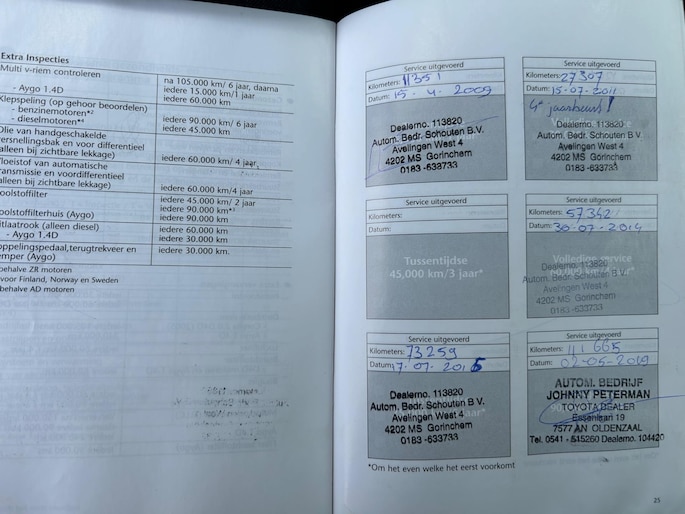 Extra Inspecties
Multi v-riem controleren
na 105.000 km/ 6 jaar, daarna
iedere 15.000 km/1 jaar
- Aygo 1.4D
iedere 60.000 km
Klepspeling (op gehoor beoordelen)
- benzinemotoren*²
iedere 90.000 km/ 6 jaar
- dieselmotoren*⁴
iedere 45.000 km
Olie van handgeschakelde
versnellingsbak en voor differentieel
(alleen bij zichtbare lekkage)
iedere 60.000 km/ 4 jaar
vloeistof van automatische
transmissie en voordifferentieel
(alleen bij zichtbare lekkage)
iedere 60.000 km/4 jaar
Koolstoffilter
iedere 45.000 km/ 2 jaar
iedere 90.000 km*³
Koolstoffilterhuis (Aygo)
iedere 90.000 km
uitlaatrook (alleen diesel)
iedere 60.000 km
- Aygo 1.4D
iedere 30.000 km
koppelingspedaal,terugtrekveer en
demper (Aygo)
iedere 30.000 km.
behalve ZR motoren
voor Finland, Norway en Sweden
behalve AD motoren
Service uitgevoerd
Kilometers: 11351
Datum: 15-4-2009
Dealerno. 113820
Autom. Bedr. Schouten B.V.
Avelingen West 4
4202 MS Gorinchem
0183 -633733
Service uitgevoerd
Kilometers: 27307
Datum: 15-07-2011
4e jaarbeurt!
Dealerno. 113820
Autom. Bedr. Schouten B.V.
Avelingen West 4
4202 MS Gorinchem
0183 -633733
Service uitgevoerd
Kilometers:
Datum:
Tussentijdse
45,000 km/3 jaar*
Service uitgevoerd
Kilometers: 57342
Datum: 30-07-2014
Volledige service
Dealerno. 113820
Autom. Bedr. Schouten B.V.
Avelingen West 4
4202 MS Gorinchem
0183 -633733
Service uitgevoerd
Kilometers: 73259
Datum: 17-07-2016
Dealerno. 113820
Autom. Bedr. Schouten B.V.
Avelingen West 4
4202 MS Gorinchem
0183 -633733
Service uitgevoerd
Kilometers: 111 665
Datum: 02-05-2019
AUTOM. BEDRIJF
JOHNNY PETERMAN
TOYOTA DEALER
Essenlaan 19
7577 AN OLDENZAAL
Tel. 0541 - 515260 Dealerno. 104420
*Om het even welke het eerst voorkomt
25